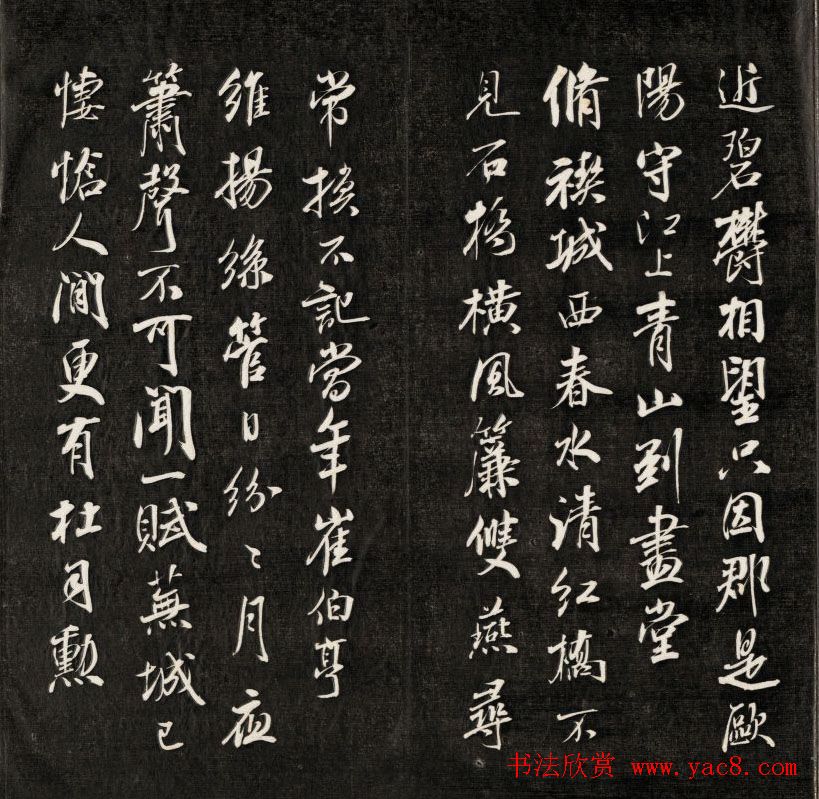 近碧欝相望只因郡是歐
陽守江上青山到畫堂
脩禊城西春水清紅橋不
見石橋橫風簾雙燕尋
常換不記當年崔伯亭
維揚絲管日紛〻月夜
簫聲不可聞一賦蕪城已
悽愴人間更有杜司勳
书法欣赏 www.yac8.com